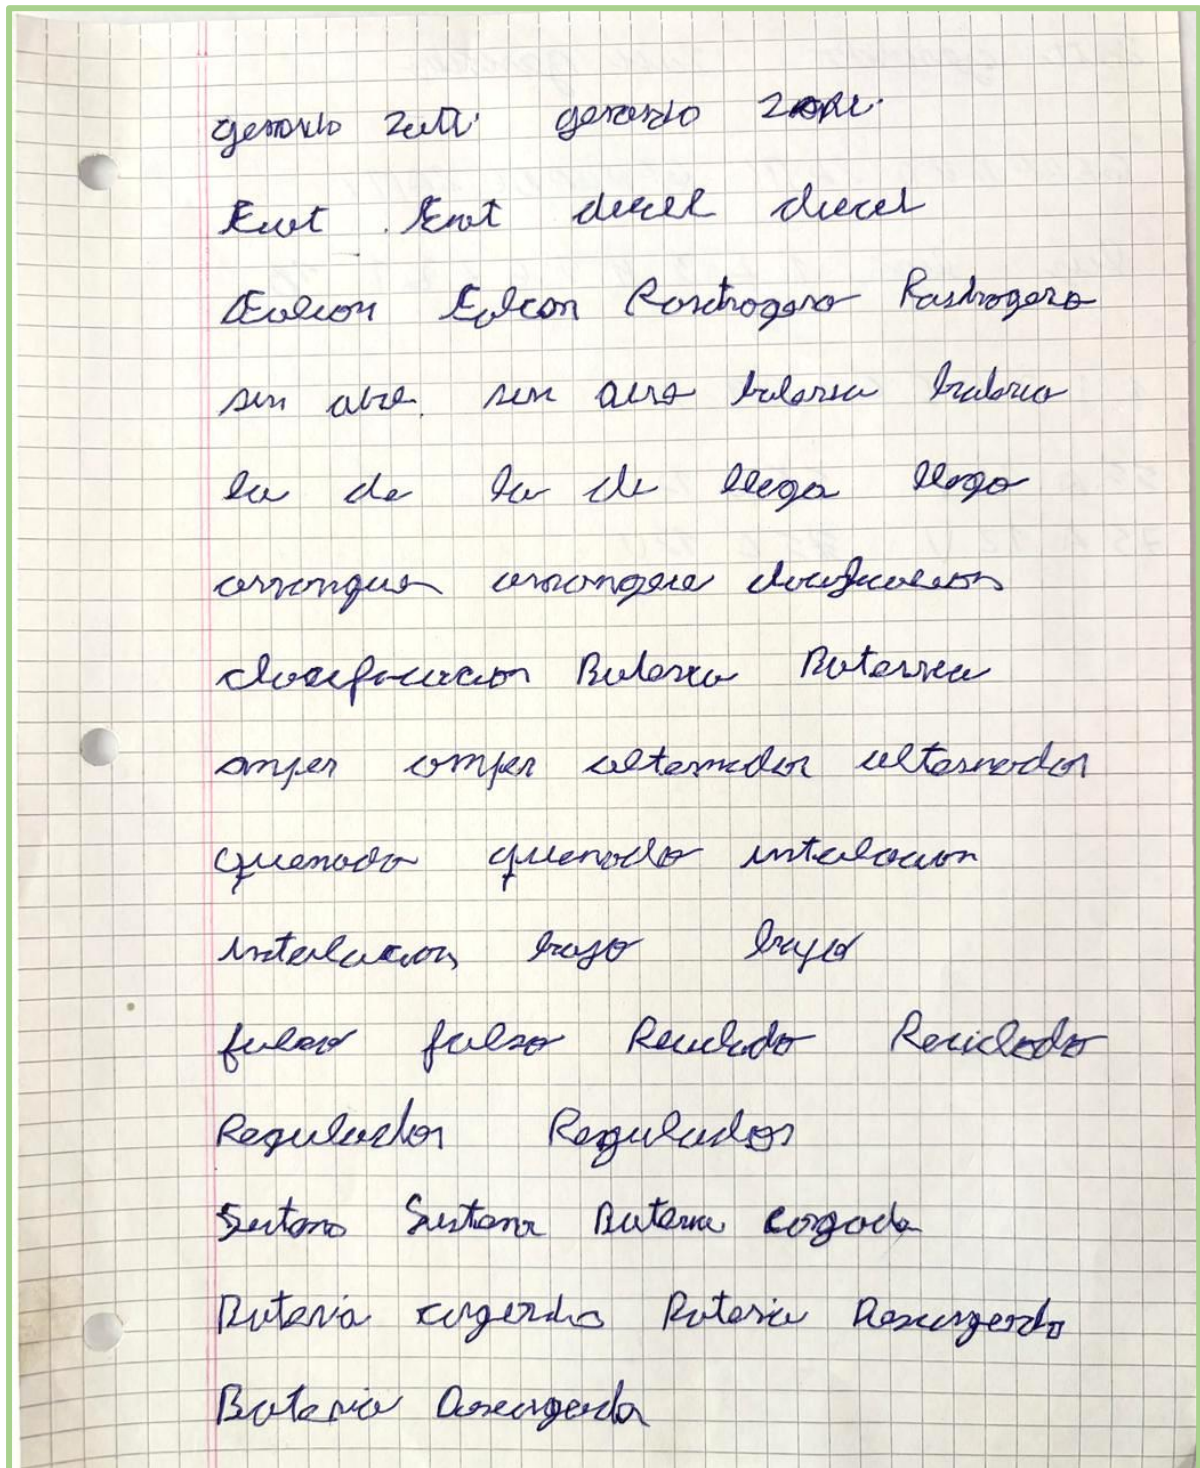 gerardo gerardo
diecel diecel
Falcon Falcon Rastrogero Rastrogero
sin aire sin aire bateria bateria
la de la de llega llega
arranque arranque docificacion
docificacion Bateria Baterria
amper amper alternador alternador
quemado quemado intalacion
intalacion bajo bajo
falso falso Reciclado Reciclado
Regulador Regulador
Sistema Sistema Bateria cargada
Bateria cargerda Bateria Descargerda
Bateria Descargerda